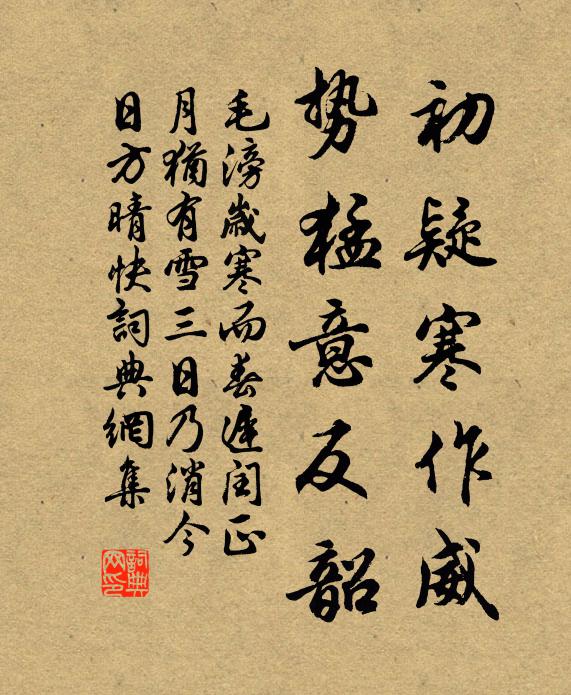 初疑寒作威
势猛意反韶
毛滂歲寒而春遲閏正
月猶有雪三日乃消今
日方晴快詞典網集
詞典
网印